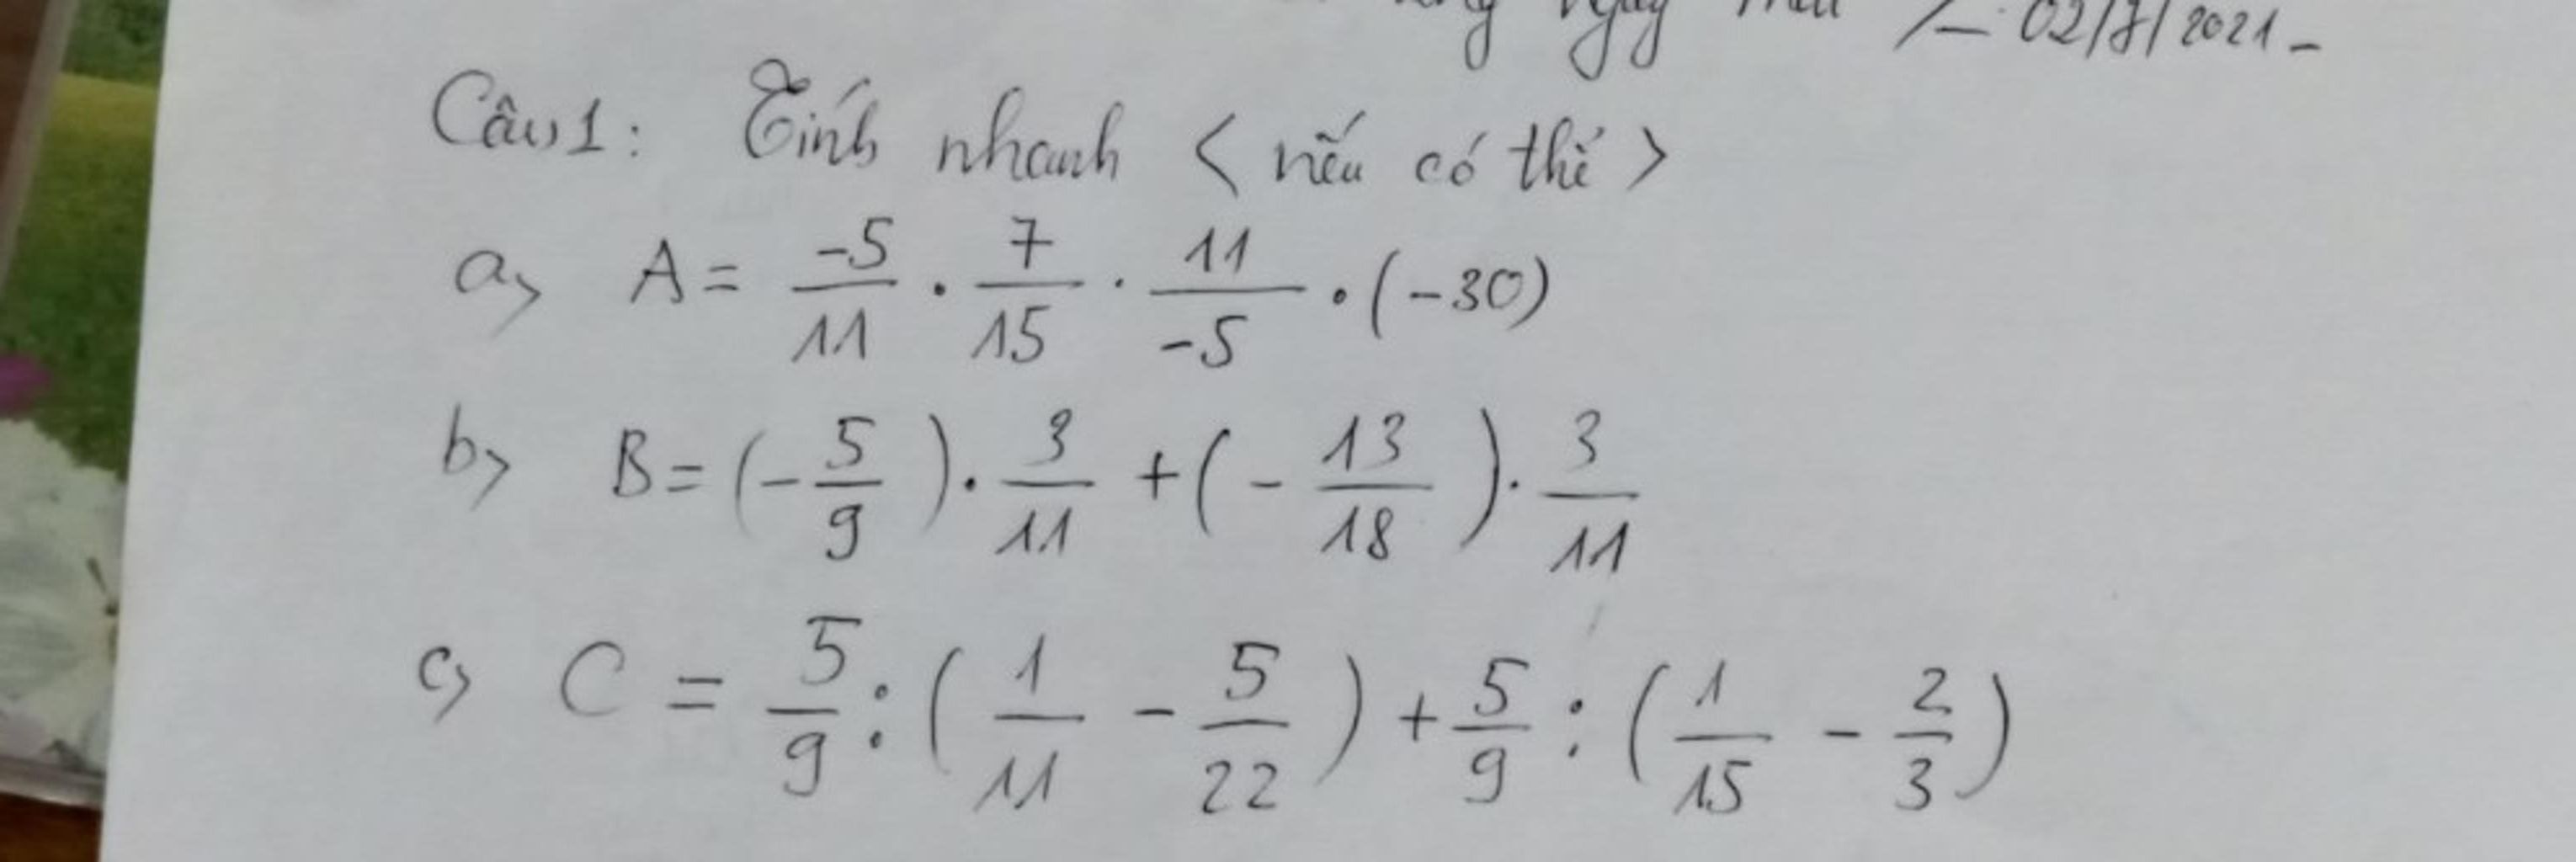 ngày 02/7/2021-
Câu 1: Tính nhanh < nếu có thể >
a, A = -5/11 . 7/15 . 11/-5 . (-30)
b, B = (-5/9) . 3/11 + (-13/18) . 3/11
c, C = 5/9 : (1/11 - 5/22) + 5/9 : (1/15 - 2/3)